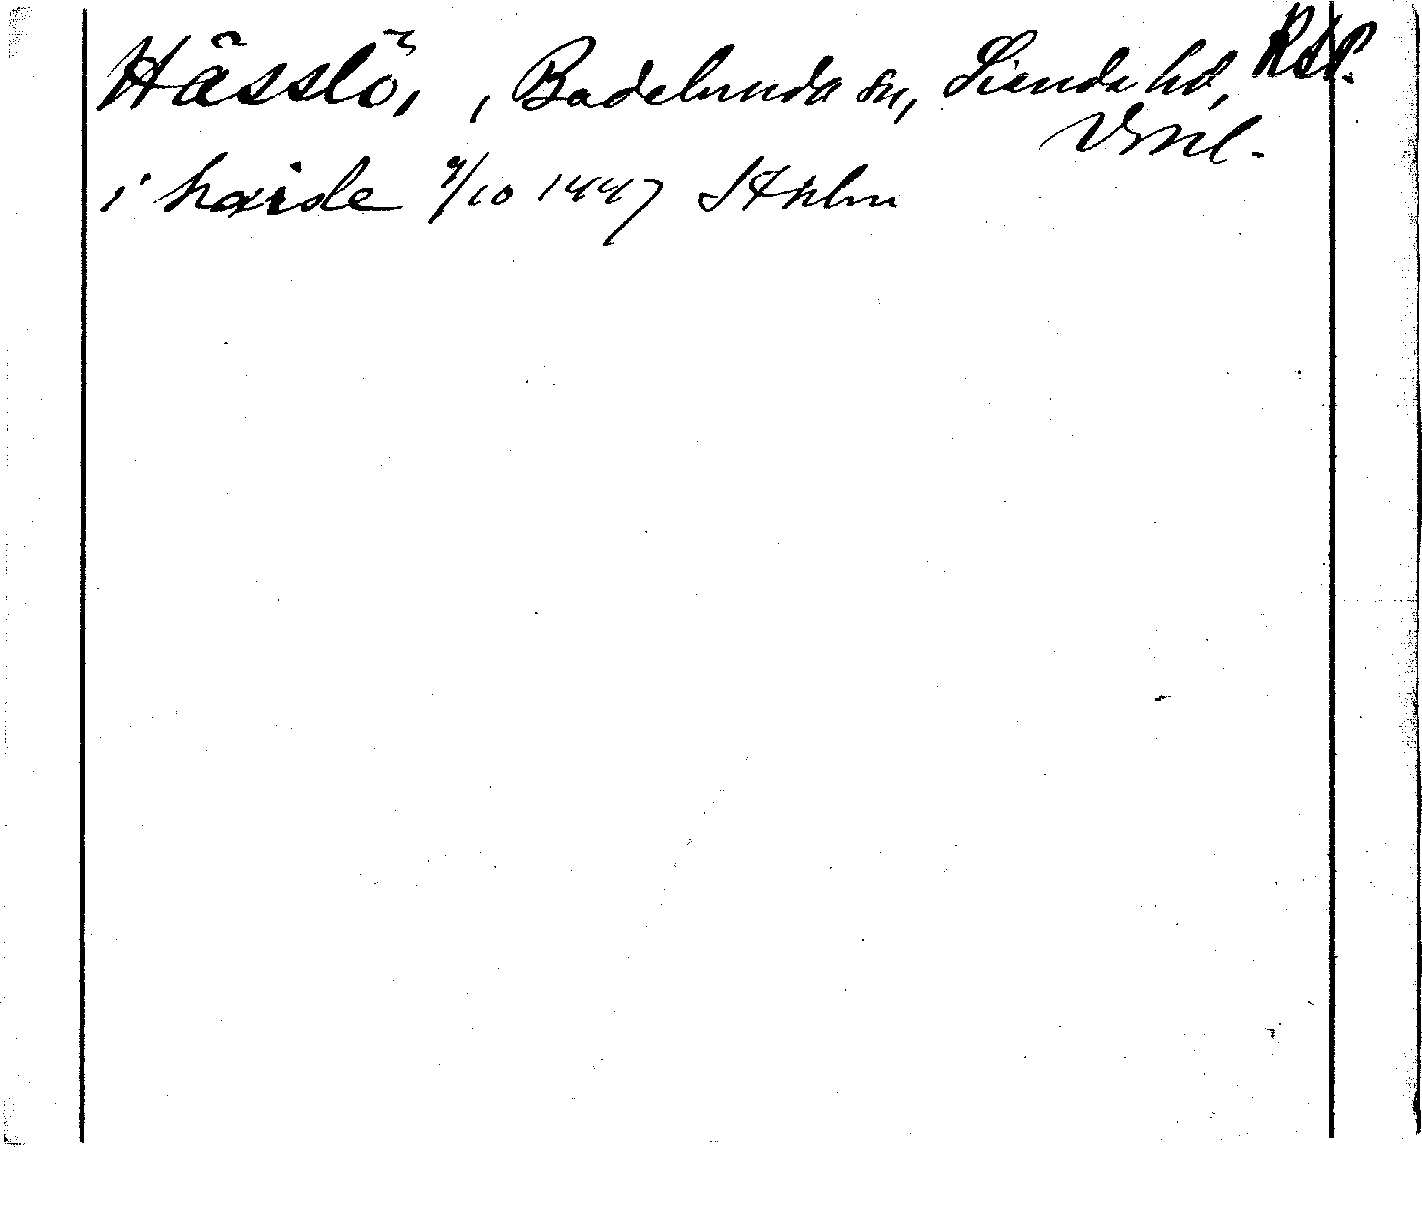 Hässlö, , Badelunda sn, Siende hd, RAP.
Vsml.
i haxsle 9/10 1447 Sthlm